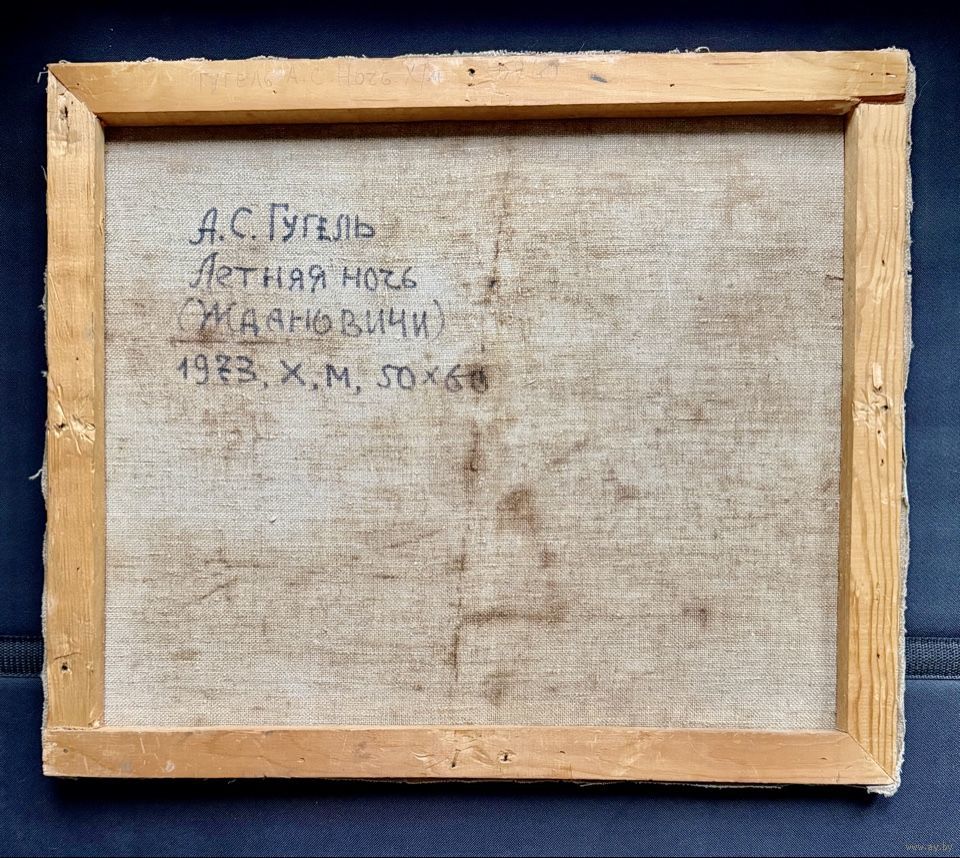 Гугель А.С. Ночь Х/м
А.С. Гугель
Летняя ночь
(Ждановичи)
1973, Х, М, 50×60
www.ay.by